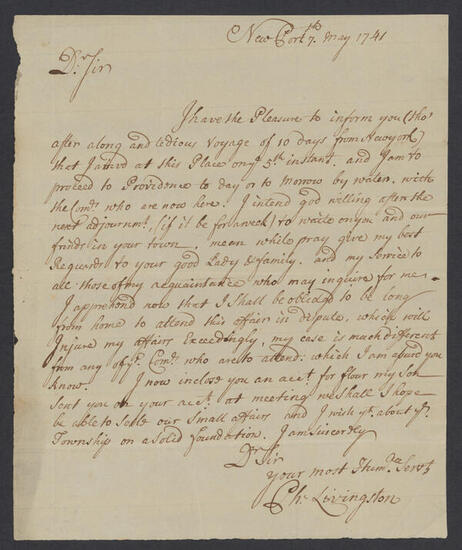 New Port 7.th May 1741
D.r Sir
I have the Pleasure to inform you (tho'
after a long and tedious Voyage of 10 days from New york)
that I arivd at this Place on y.e 5th instant. and I am to
proceed to Providence to day or to morrow by water. with
the Com.rs who are now here. I intend god willing after the
next adjournm.t (if it be for a week) to waite on you and our
frinds in your town. mean while pray give my best
Regards to your good Lady & family. and my Service to
all those of my acquaintance who may inquire for me.
I apprehend now that I shall be obliedg'd to be long
from home to attend this affair in dispute, which will
Injure my affairs Exceedingly, my case is much different
from any of y.e Com.rs who are to attend: which I am assured you
know. I now inclose you an acc.t for flour my Son
sent you on your acc.t at meeting we shall I hope
be able to settle our Small affairs and I wish y.t about y.e
Township on a Solid foundation. I am sincerely
D.r Sir
your most Hum.e Serv.t
Ph: Livingston